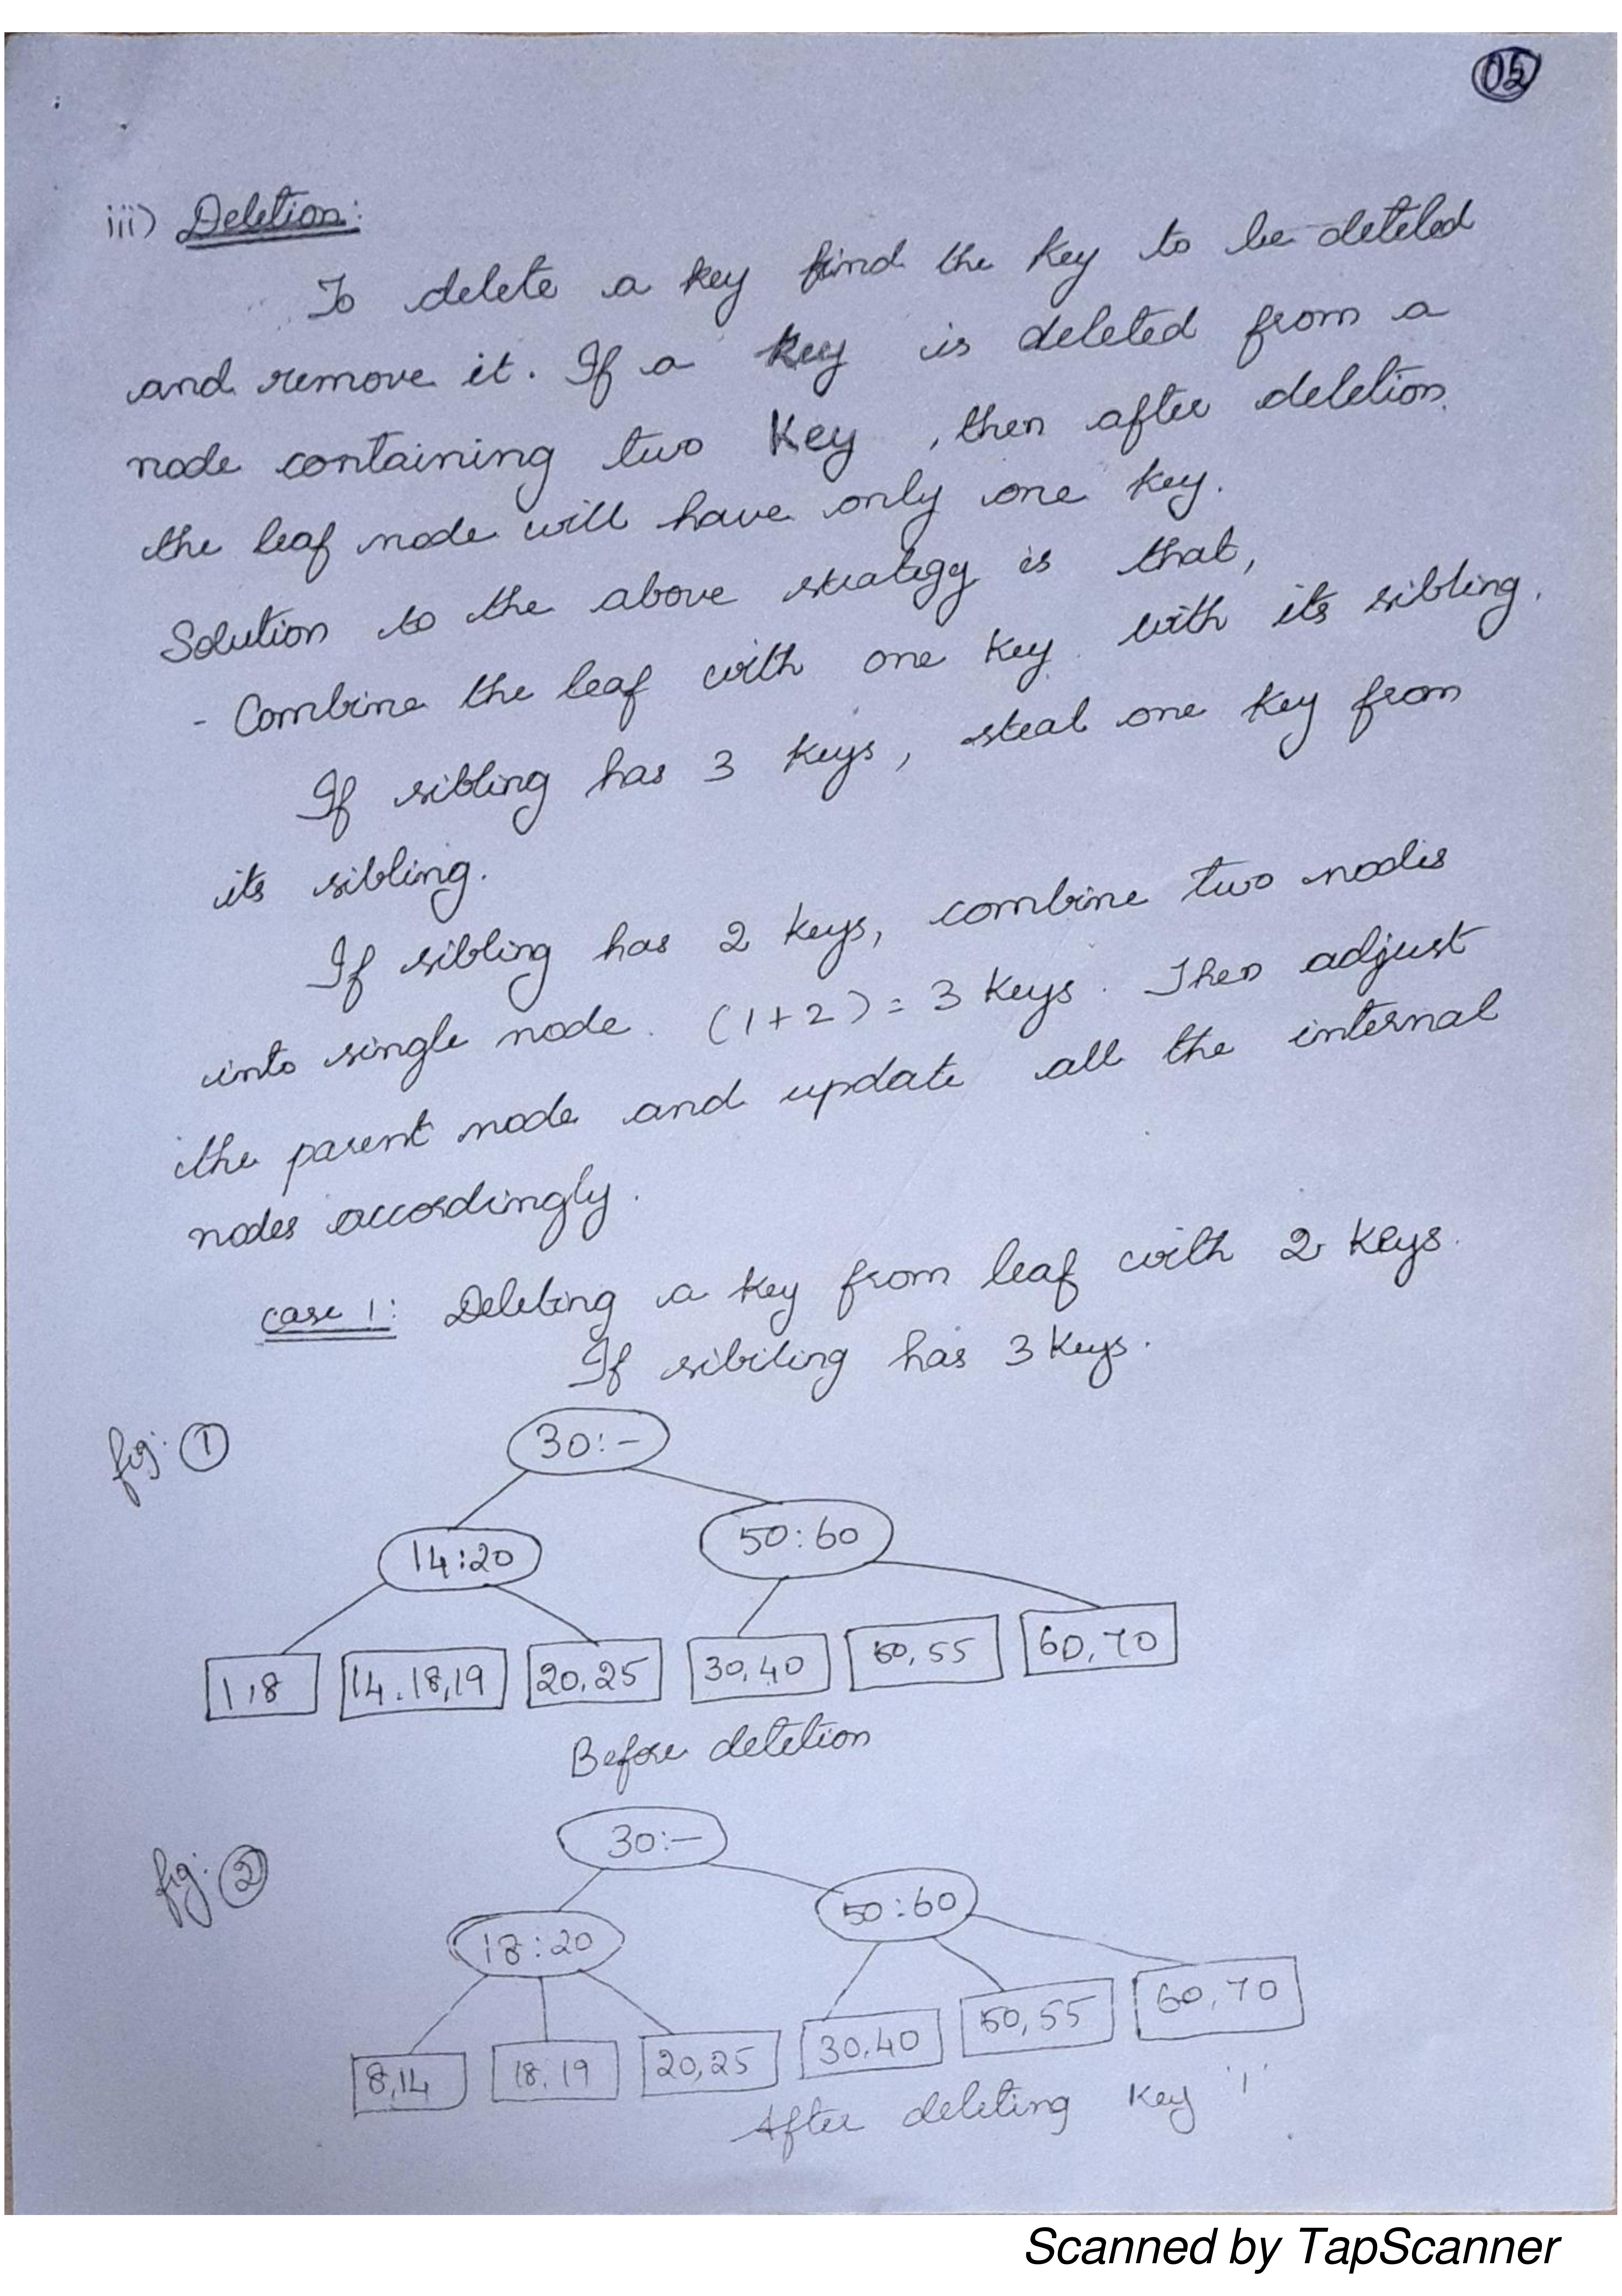 05
iii) Deletion:
To delete a key find the key to be deteled
and remove it. If a key is deleted from a
node containing two key, then after deletion
the leaf node will have only one key.
Solution to the above strategy is that,
- Combine the leaf with one key with its sibling.
If sibling has 3 keys, steal one key from
its sibling.
If sibling has 2 keys, combine two nodes
into single node. (1+2) = 3 keys. Then adjust
the parent node and update all the internal
nodes accordingly.
case 1: Deleting a key from leaf with 2 keys.
If sibiling has 3 keys.
fig: 1
30:-
14:20 50:60
1,8 14.18,19 20,25 30,40 50,55 60,70
Before deletion
fig: 2
30:-
18:20 50:60
8,14 18,19 20,25 30,40 50,55 60,70
After deleting key '1'
Scanned by TapScanner